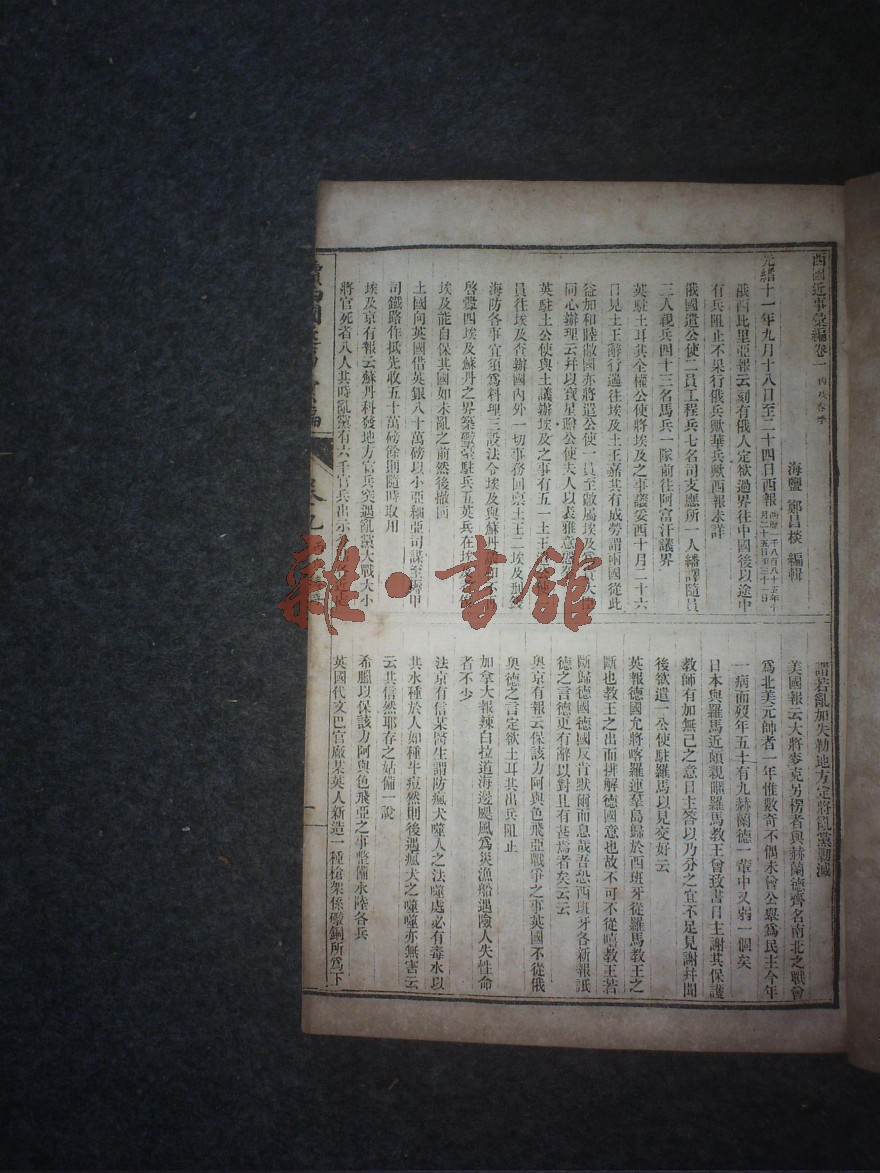 西國近事彙編卷一 丙戌春季
海鹽 鄭昌棪 編輯
光緒十一年九月十八日至二十四日西報 西曆一千八百八十五年十月二十五日至三十一日
俄西比里亞報云刻有俄人定欲過界往中國後以途中
有兵阻止不果行俄兵歟華兵歟西報未詳
俄國遣公使二員工程兵七名司支應所一人繙譯隨員
三人親兵四十三名馬兵一隊前往阿富汗議界
英駐土耳其全權公使將埃及之事議妥西十月二十六
日見土王辭行過往埃及土王嘉其有成勞謂兩國從此
益加和睦敝國亦將遣公使一員至敝屬埃及
同心辦理云并以寶星贈公使夫人以表雅意
英駐土公使與土議辦埃及之事有五一土王
員往埃及查辦國內外一切事務回稟土王二埃及
海防各事宜須爲料理三設法令埃及與蘇丹
啓釁四埃及蘇丹之界築礮臺駐兵五英兵在埃
埃及能自保其國如未亂之前然後撤回
土國向英國借英銀八十萬磅以小亞細亞司
司鐵路作抵先收五十萬磅餘則隨時取用
埃及京有報云蘇丹科發地方官兵突遇亂黨大戰大小
將官死者八人其時亂黨有六千官兵出示
謂若亂加失勒地方定將亂黨勦滅
美國報云大將麥克另楞者與赫蘭德齊名南北之戰曾
爲北美元帥者一年惟數奇不偶未曾公舉爲民主今年
一病而歿年五十有九赫蘭德一輩中又弱一個矣
日本與羅馬近頗親暱羅馬教王曾致書日主謝其保護
教師有加無已之意日主答以乃分之宜不足見謝并聞
後欲遣一公使駐羅馬以見交好云
英報德國允將喀羅連羣島歸於西班牙從羅馬教王之
斷也教王之出而排解德國意也故不可不從噫教王若
斷歸德國德國反首默爾而息哉吾恐西班牙各新報詆
德之言德更有辭以對且有甚焉者矣云云
奥京有報云保該力阿與色飛亞戰爭之事英國不從俄
奥德之言定欲土耳其出兵阻止
加拿大報辣白拉道海邊颶風爲災漁船遇險人失性命
者不少
法京有信某醫生謂防瘋犬噬人之法噬處必有毒水以
其水種於人如種牛痘然則後遇瘋犬之噬噬亦無害云
云其信然耶存之姑備一說
希臘以保該力阿與色飛亞之事整備水陸各兵
英國代文巴官廠某英人新造一種槍架係礮銅所爲下
雜·書館